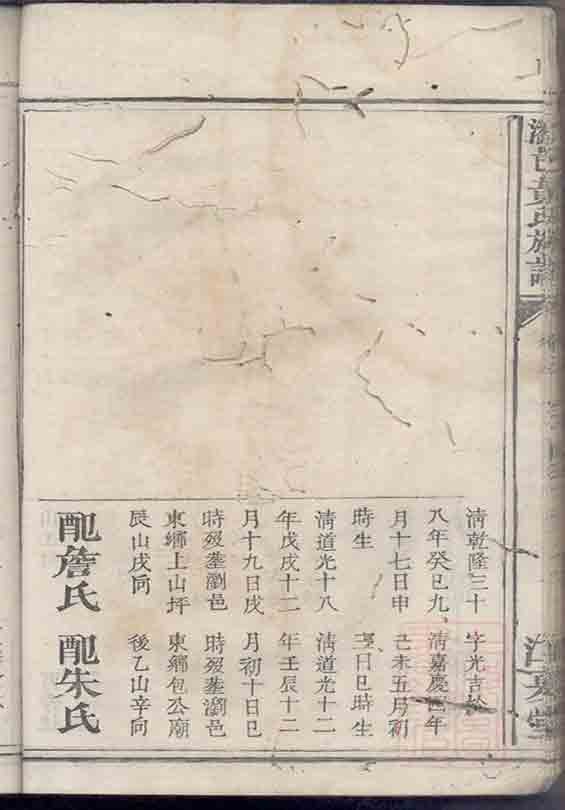 瀏邑黃氏族譜
清乾隆三十
八年癸巳九
月十七日申
時生
清道光十八
年戊戌十二
月十九日戌
時歿塟瀏邑
東鄉上山坪
艮山戌向
配詹氏
字光吉
清嘉慶四年
己未五月初
三日巳時生
清道光十二
年壬辰十二
月初十日巳
時歿塟瀏邑
東鄉包公廟
後乙山辛向
配朱氏
江夏堂